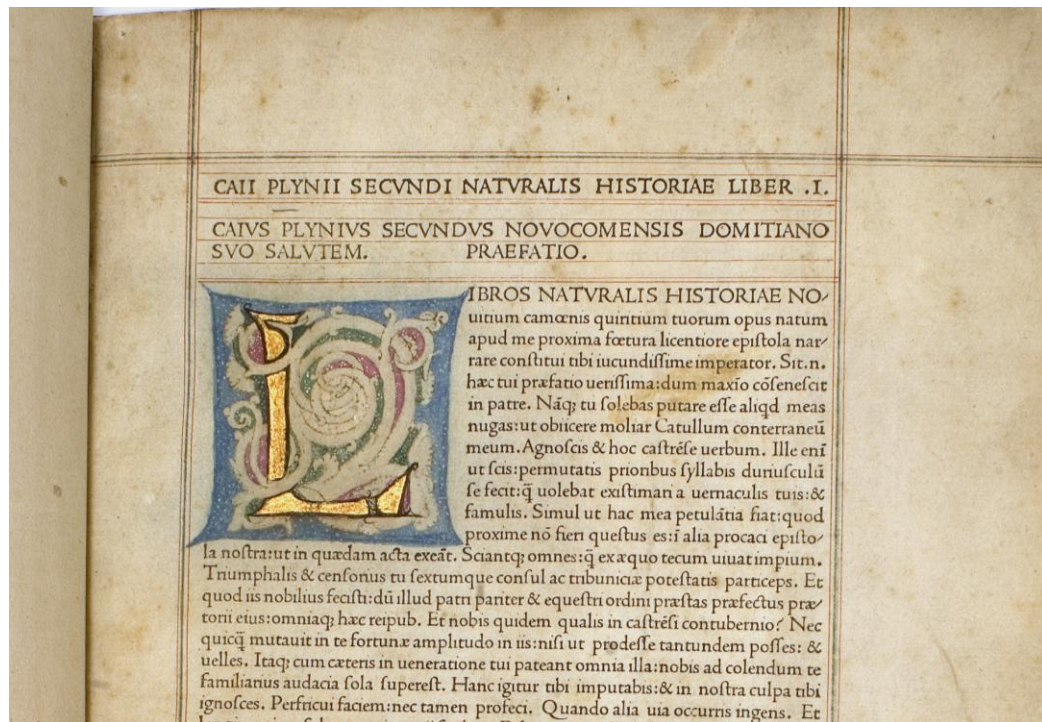 CAII PLYNII SECVNDI NATVRALIS HISTORIAE LIBER .I.
CAIVS PLYNIVS SECVNDVS NOVOCOMENSIS DOMITIANO
SVO SALVTEM. PRAEFATIO.
LIBROS NATVRALIS HISTORIAE NO⸗
uitium camœnis quiritium tuorum opus natum
apud me proxima fœtura licentiore epiſtola nar⸗
rare conſtitui tibi iucundiſſime imperator. Sit.n.
hæc tui præfatio ueriſſima:dum maxīo cōſeneſcit
in patre. Nāq; tu ſolebas putare eſſe aliqd meas
nugas:ut obiicere moliar Catullum conterraneū
meum. Agnoſcis & hoc caſtrēſe uerbum. Ille enī
ut ſcis:permutatis prioribus ſyllabis duriuſculū
ſe fecit:q̄ uolebat exiſtimari a uernaculis tuis:&
famulis. Simul ut hac mea petulātia fiat:quod
proxime nō fieri queſtus es:ī alia procaci epiſto⸗
la noſtra:ut in quædam acta exeāt. Sciantq; omnes:q̄ ex æquo tecum uiuat impium.
Triumphalis & cenſorius tu ſextumque conſul ac tribuniciæ poteſtatis particeps. Et
quod iis nobilius feciſti:dū illud patri pariter & equeſtri ordini præſtas præfectus præ⸗
torii eius:omniaq; hæc reipub. Et nobis quidem qualis in caſtrēſi contubernio? Nec
quicq̄ mutauit in te fortunæ amplitudo in iis:niſi ut prodeſſe tantundem poſſes: &
uelles. Itaq; cum cæteris in ueneratione tui pateant omnia illa:nobis ad colendum te
familiarius audacia ſola ſupereſt. Hanc igitur tibi imputabis:& in noſtra culpa tibi
ignoſces. Perfricui faciem:nec tamen profeci. Quando alia uia occurris ingens. Et